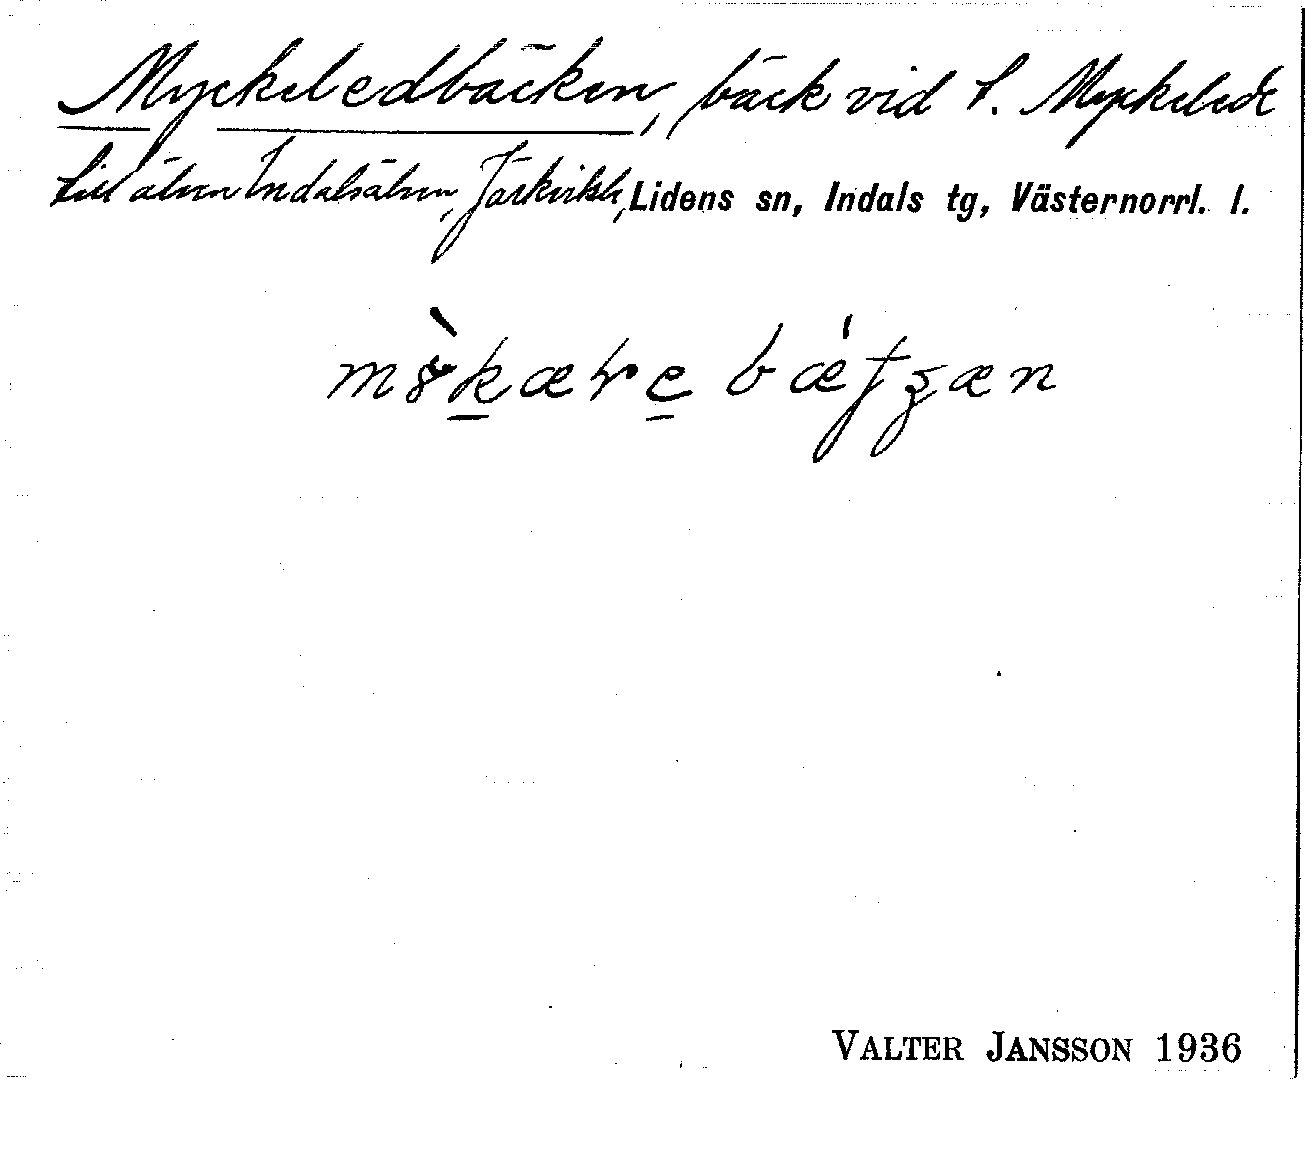 Myckeledbäcken, bäck vid S. Myckelede
till älven Indalsälven, Järkvitsle, Lidens sn, Indals tg, Västernorrl. l.
bǽtʒæn
VALTER JANSSON 1936